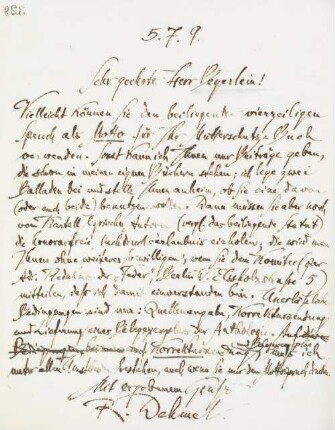 329
5. 7. 9.
Sehr geehrter Herr Bögerlein!
Vielleicht können Sie den beiliegenden vierzeiligen
Spruch als Motto für Ihr Mutterschutz-Buch
verwenden. Sonst kann ich Ihnen nur Beiträge geben,
die schon in meinen eignen Büchern stehen; ich lege zwei
Balladen bei und stelle Ihnen anheim, ob Sie eine davon
(oder auch beide) benutzen wollen. Dann müssen Sie aber noch
vom Kartell lyrischer Autoren (vergl. das beiliegende Statut)
die honorarfreie Nachdruckserlaubnis einholen; die wird man
Ihnen ohne weiteres bewilligen, wenn Sie dem Komitee (per
Ad. Redaktion der "Feder" Berlin W. Elssholzstraße 5)
mitteilen, daß ich damit einverstanden bin. Unerläßliche
Bedingungen sind nur: Quellenangabe, Korrektursendung
und Lieferung eines Belegexemplars der Anthologie. Auf
Korrektursendung muß ich
unter allen Umständen bestehen, auch wenn Sie nur den Mottospruch
Mit ergebenem Gruß
R. Dehmel.